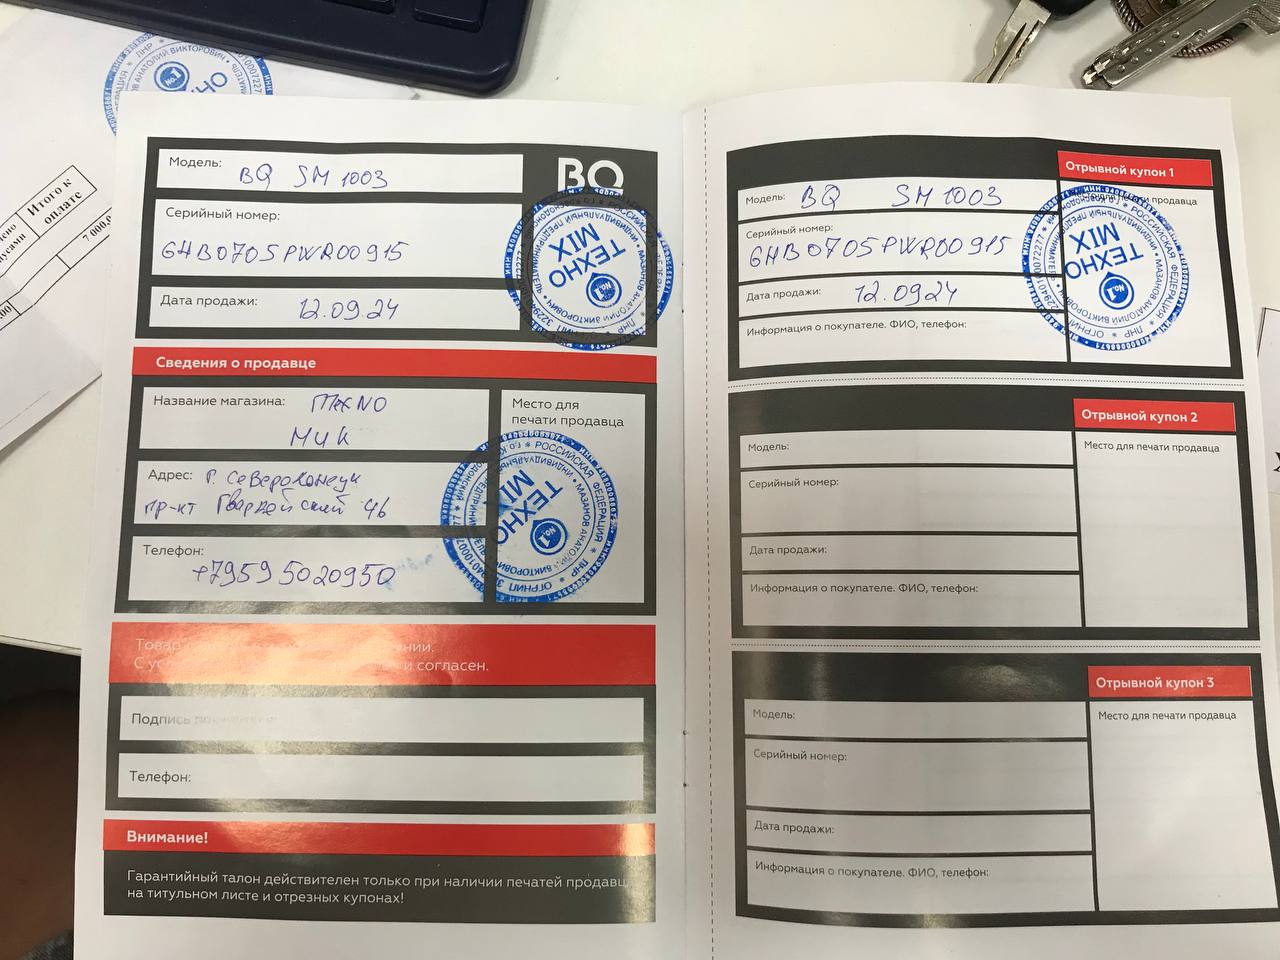 Итого к
оплате
7 000,
ТЕХНО
MIX
No.1
Модель: BQ SM 1003
BQ
Серийный номер:
6HB0705PWR00915
Дата продажи: 12.09.24
Сведения о продавце
Название магазина:
Место для
печати продавца
Адрес: г.
пр-кт Гвардейский 46
Телефон:
+79595020950
ТЕХНО
MIX
No.1
МАЗАНОВ АНАТОЛИЙ ВИКТОРОВИЧ
РОССИЙСКАЯ ФЕДЕРАЦИЯ * ЛНР
Товар
С согласен.
Подпись
Телефон:
Внимание!
Гарантийный талон действителен только при наличии печатей продавца
на титульном листе и отрезных купонах!
Отрывной купон 1
Модель: BQ SM 1003
продавца
Серийный номер:
6HB0705PWR00915
Дата продажи: 12.0924
Информация о покупателе. ФИО, телефон:
ТЕХНО
MIX
No.1
МАЗАНОВ АНАТОЛИЙ ВИКТОРОВИЧ
РОССИЙСКАЯ ФЕДЕРАЦИЯ * ЛНР
Отрывной купон 2
Модель:
Место для печати продавца
Серийный номер:
Дата продажи:
Информация о покупателе. ФИО, телефон:
Отрывной купон 3
Модель:
Место для печати продавца
Серийный номер:
Дата продажи:
Информация о покупателе. ФИО, телефон: